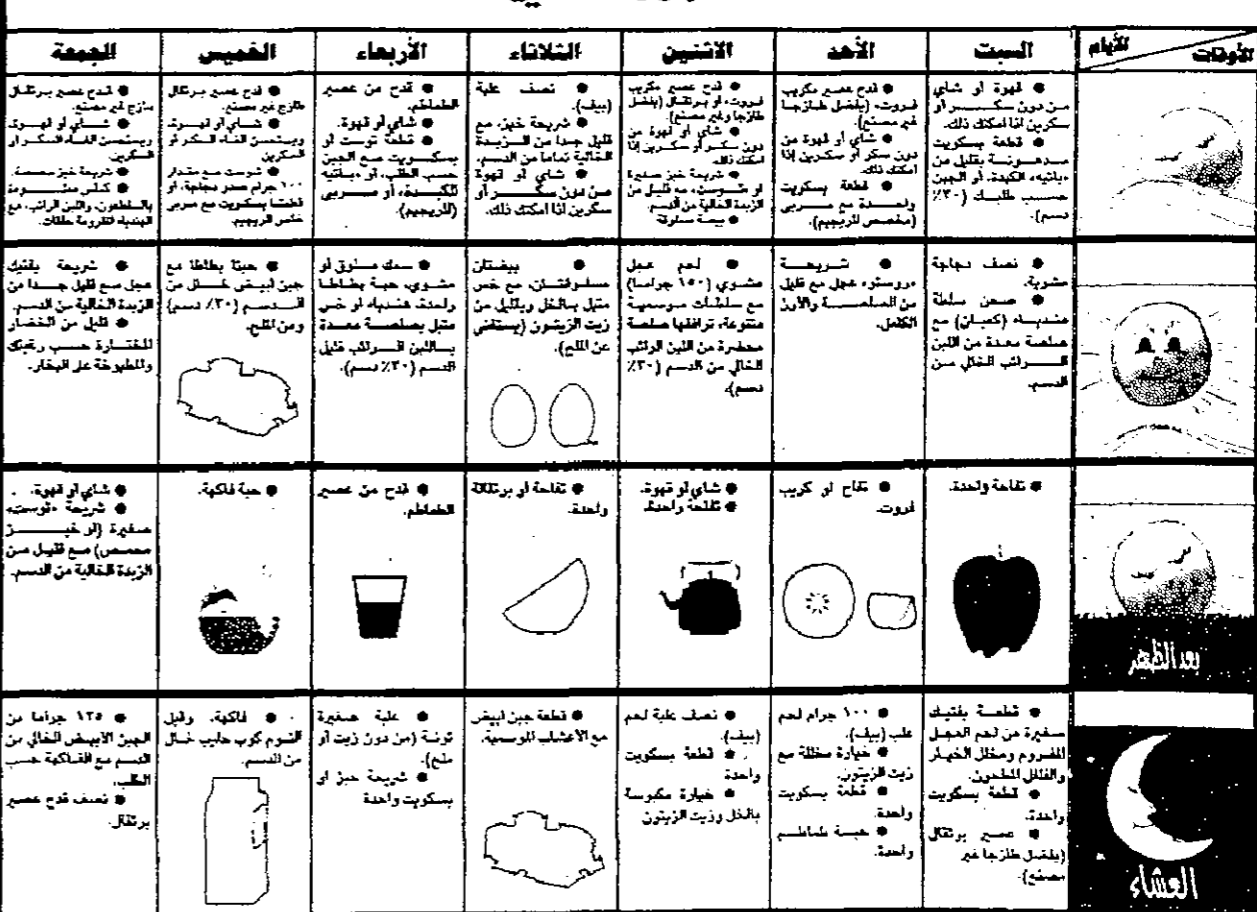 الأيام
الأوقات
السبت
الأحد
الاثنين
الثلاثاء
الأربعاء
الخميس
الجمعة
● قهوة أو شاي
من دون سكر أو
سكرين اذا امكنك ذلك.
● قطعة بسكويت
مدهونة بقليل من
«باتيه» الكبدة، أو الجبن
حسب طلبك (٣٠٪
دسم).
● قدح عصير كريب
فروت، (يفضل طازجا
غير مصنع).
● شاي أو قهوة من
دون سكر أو سكرين إذا
امكنك ذلك.
● قطعة بسكويت
واحدة مع مربى
(مخصص للريجيم).
● قدح عصير كريب
فروت، أو برتقال (يفضل
طازجا وغير مصنع).
● شاي أو قهوة من
دون سكر أو سكرين إذا
امكنك ذلك.
● شريحة خبز صغيرة
أو توست، مع قليل من
الزبدة الخالية من الدسم.
● بيضة مسلوقة
● نصف علبة
(بيف).
● شريحة خبز، مع
قليل جدا من الزبدة
الخالية تماما من الدسم.
● شاي أو قهوة
من دون سكر أو
سكرين اذا امكنك ذلك.
● قدح من عصير
الطماطم.
● شاي أو قهوة.
● قطعة توست أو
بسكويت مع الجبن
حسب الطلب، أو «باتيه
للكبدة، أو مربى
(للريجيم).
● قدح عصير برتقال
طازج غير مصنع.
● شاي أو قهوة.
ويستحسن الغاء السكر أو
السكرين
● توست مع مقدار
١٠٠ جرام صدر دجاجة، أو
قطعتا بسكويت مع مربى
خاص الريجيم.
● قدح عصير برتقال
طازج غير مصنع.
● شاي أو قهوة.
ويستحسن الغاء السكر أو
السكرين.
● شريحة خبز محمصة.
واللبن الرائب، مع
● نصف دجاجة
مشوية.
● صحن سلطة
هندباء (كعبان) مع
صلصة معدة من اللبن
الرائب الخالي من
الدسم.
● شريحة
«روستو» عجل مع قليل
من الصلصة والأرز
الكامل.
● لحم عجل
مشوي (١٥٠ جراما)
مع سلطات موسمية
متنوعة، ترافقها صلصة
محضرة من اللبن الرائب
الخالي من الدسم (٣٠٪
دسم).
● بيضتان
مسلوقتان، مع خس
متبل بالخل وبقليل من
زيت الزيتون (يستغنى
عن الملح).
● سمك مسلوق أو
مشوي، حبة بطاطا
واحدة، هندباء أو خس
متبل بصلصة معدة
باللبن الرائب قليل
الدسم (٣٠٪ دسم).
● حبتا بطاطا مع
جبن أبيض خال من
الدسم (٣٠٪ دسم)
ومن الملح.
● شريحة بفتيك
عجل مع قليل جدا من
الزبدة الخالية من الدسم.
● قليل من الخضار
المختارة حسب رغبتك
والمطبوخة على البخار.
بعد الظهر
● تفاحة واحدة.
● تفاح أو كريب
فروت.
● شاي أو قهوة.
● تفاحة واحدة.
● تفاحة أو برتقالة
واحدة.
● قدح من عصير
الطماطم.
● حبة فاكهة.
● شاي أو قهوة.
● شريحة «توست»
صغيرة (أو خبز
محمص) مع قليل من
الزبدة الخالية من الدسم.
العشاء
● قطعة بفتيك
صغيرة من لحم العجل
المفروم ومخلل الخيار
والفلفل المطحون.
● قطعة بسكويت
واحدة.
● عصير برتقال
(يفضل طازجا غير
مصنع).
● ١٠٠ جرام لحم
علب (بيف).
● خيارة مخللة مع
زيت الزيتون.
● قطعة بسكويت
واحدة.
● حبة طماطم
واحدة.
● نصف علبة لحم
(بيف).
● قطعة بسكويت
واحدة
● خيارة مكبوسة
بالخل وزيت الزيتون
● قطعة جبن أبيض
مع الأعشاب الموسمية.
● علبة صغيرة
تونة (من دون زيت أو
ملح).
● شريحة خبز أو
بسكويت واحدة
● فاكهة. وقبل
النوم كوب حليب خال
من الدسم.
● ١٢٥ جراما من
الجبن الأبيض الخالي من
الدسم مع الفاكهة حسب
الطلب.
● نصف قدح عصير
برتقال.